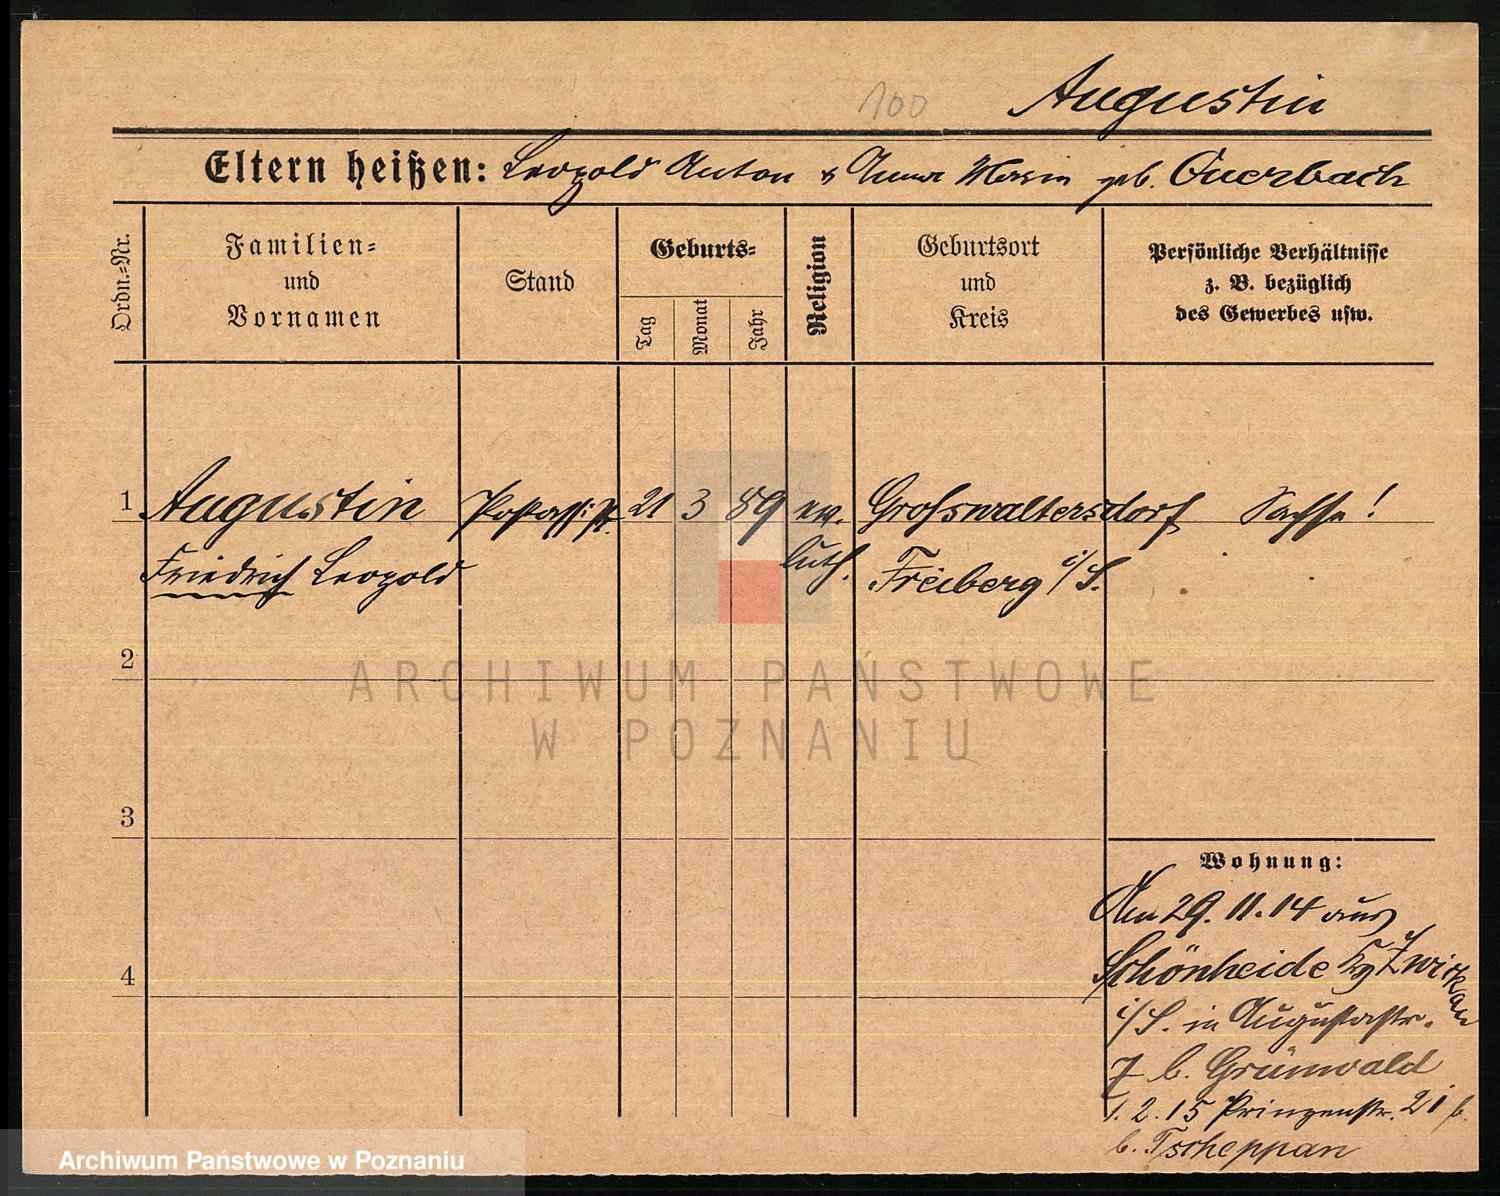 100
Augustin
Eltern heißen: Leopold Anton & Anna Marin geb. Querbach
Ordn.=Nr.
Familien=
und
Vornamen
Stand
Geburts=
Tag
Monat
Jahr
Religion
Geburtsort
und
Kreis
Persönliche Verhältnisse
z. B. bezüglich
des Gewerbes usw.
1 Augustin 21 3 89 ev. Grosswaltersdorf Sachse!
Friedrich Leopold luth. Freiberg i/S.
2
3
4
Wohnung:
Am 29. 11. 14 aus
Schönheide Zwickau
i/S. in Augustastr.
7 b. Grünwald
1. 2. 15 Prinzenstr. 21
b. Tscheppan
ARCHIWUM PAŃSTWOWE
W POZNANIU
Archiwum Państwowe w Poznaniu